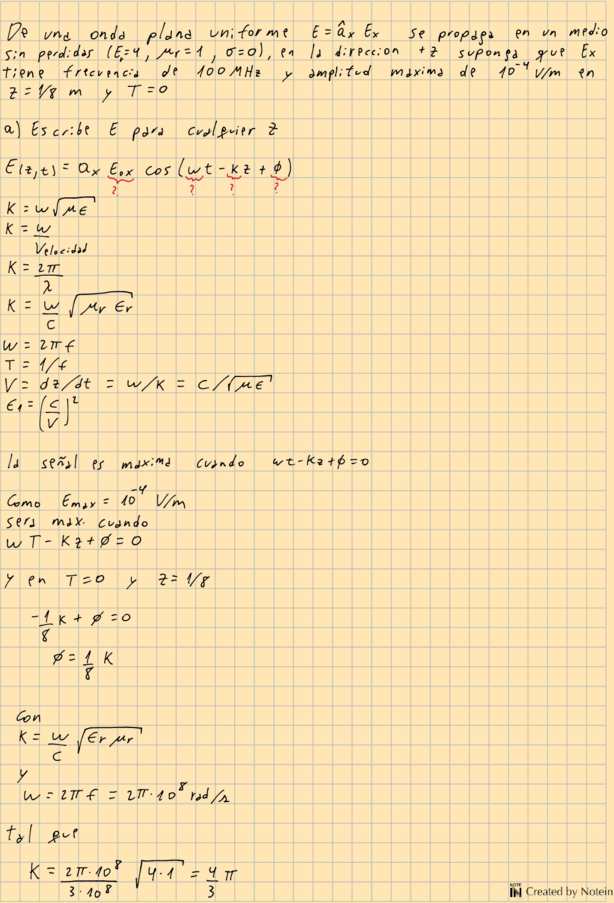 De una onda plana uniforme E = âx Ex se propaga en un medio
sin perdidas (Er=4, μr=1, σ=0), en la direccion +z suponga que Ex
tiene frecuencia de 100 MHz y amplitud maxima de 10^-4 V/m en
z = 1/8 m y T=0
a) Escribe E para cualquier z
E(z,t) = ax Eox cos(wt - kz + ϕ)
? ? ? ?
K = w√με
K = w/Velocidad
K = 2π/λ
K = w/c √μr Er
w = 2πf
T = 1/f
V = dz/dt = w/k = c/√με
ε1 = (c/V)^2
la señal es maxima cuando wt-kz+ϕ=0
Como Emax = 10^-4 V/m
sera max. cuando
wT - Kz + ϕ = 0
y en T=0 y z=1/8
-1/8 K + ϕ = 0
ϕ = 1/8 K
Con
K = w/c √Er μr
y
w = 2πf = 2π·10^8 rad/s
tal que
K = 2π·10^8/3·10^8 √4·1 = 4/3 π
NOTE IN Created by Notein